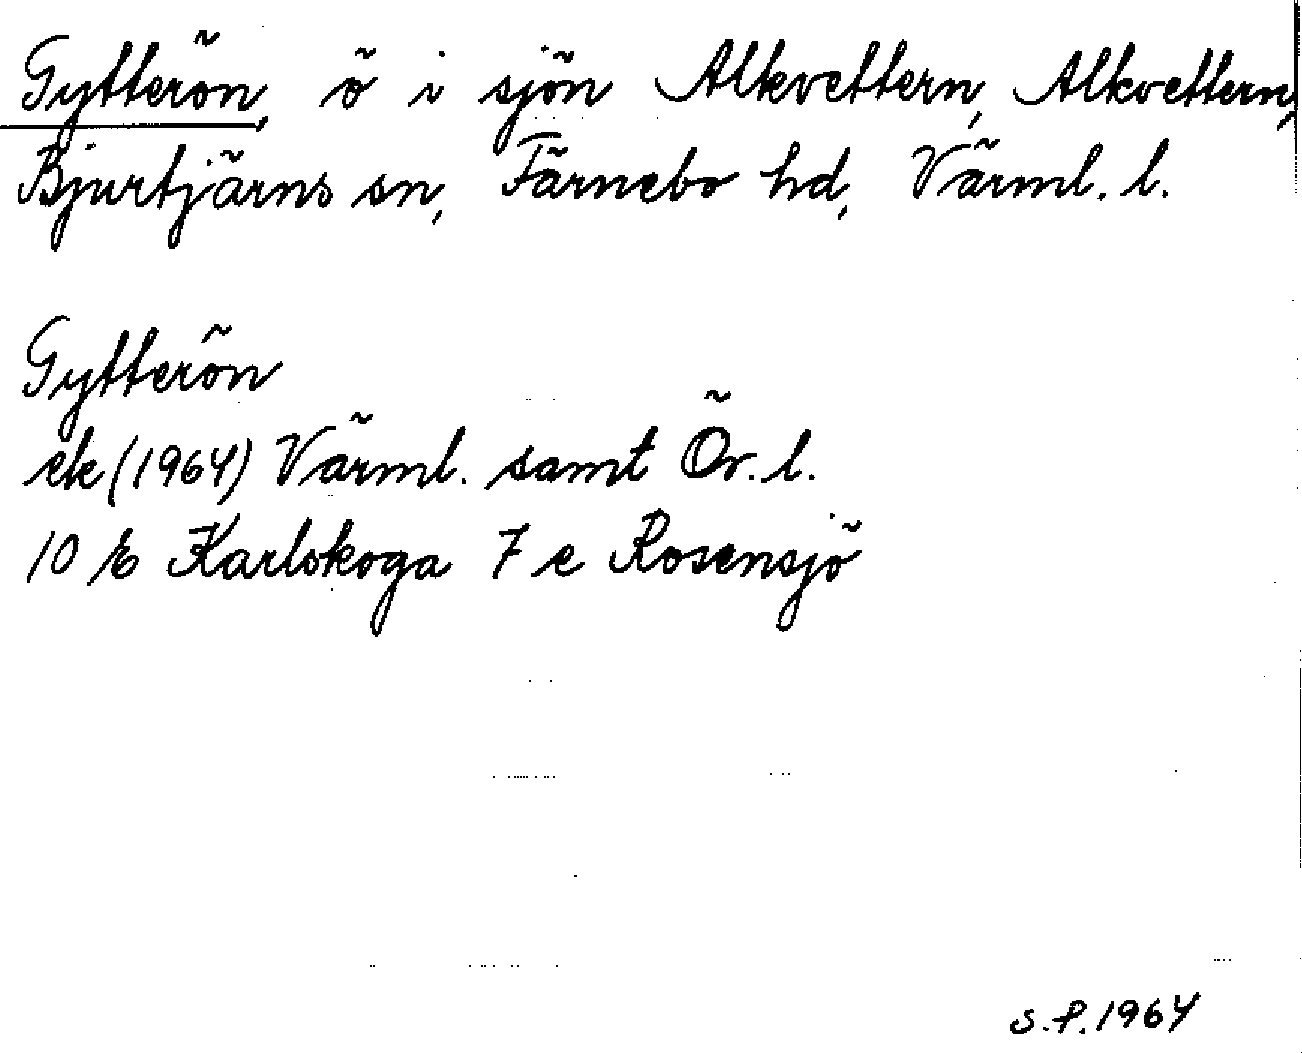 Gytterön, ö i sjön Alkvettern, Alkvettern,
Bjurtjärns sn, Färnebo hd, Värml. l.
Gytterön
ek (1964) Värml. samt Ör. l.
10 E Karlskoga 7 e Rosensjö
S.P. 1964